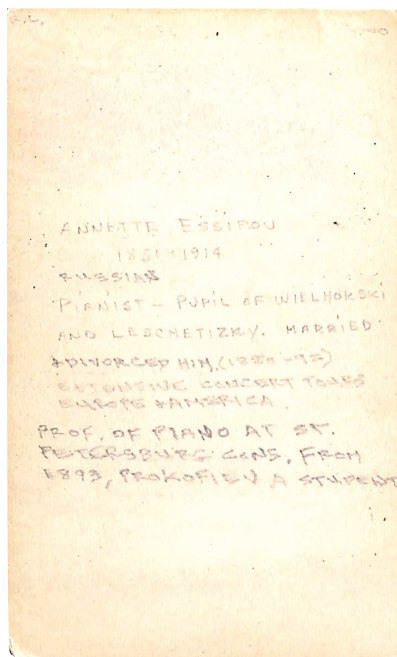 ANNETTE ESSIPOV
1851-1914
RUSSIAN
PIANIST - PUPIL OF WIELHORSKI
AND LESCHETIZKY. MARRIED
+ DIVORCED HIM, (1880-92)
EXTENSIVE CONCERT TOURS
EUROPE + AMERICA.
PROF. OF PIANO AT ST.
PETERSBURG CONS. FROM
1893, PROKOFIEV A STUDENT